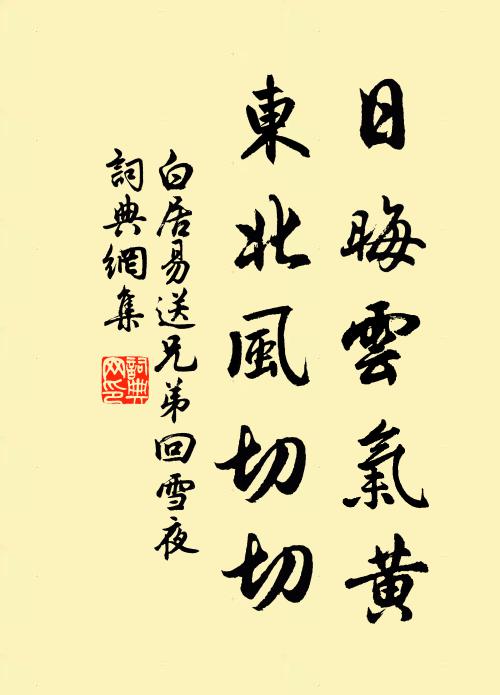 日晦雲氣黄
東北風切切
白居易送兄弟回雪夜
詞典網集
詞典
网印